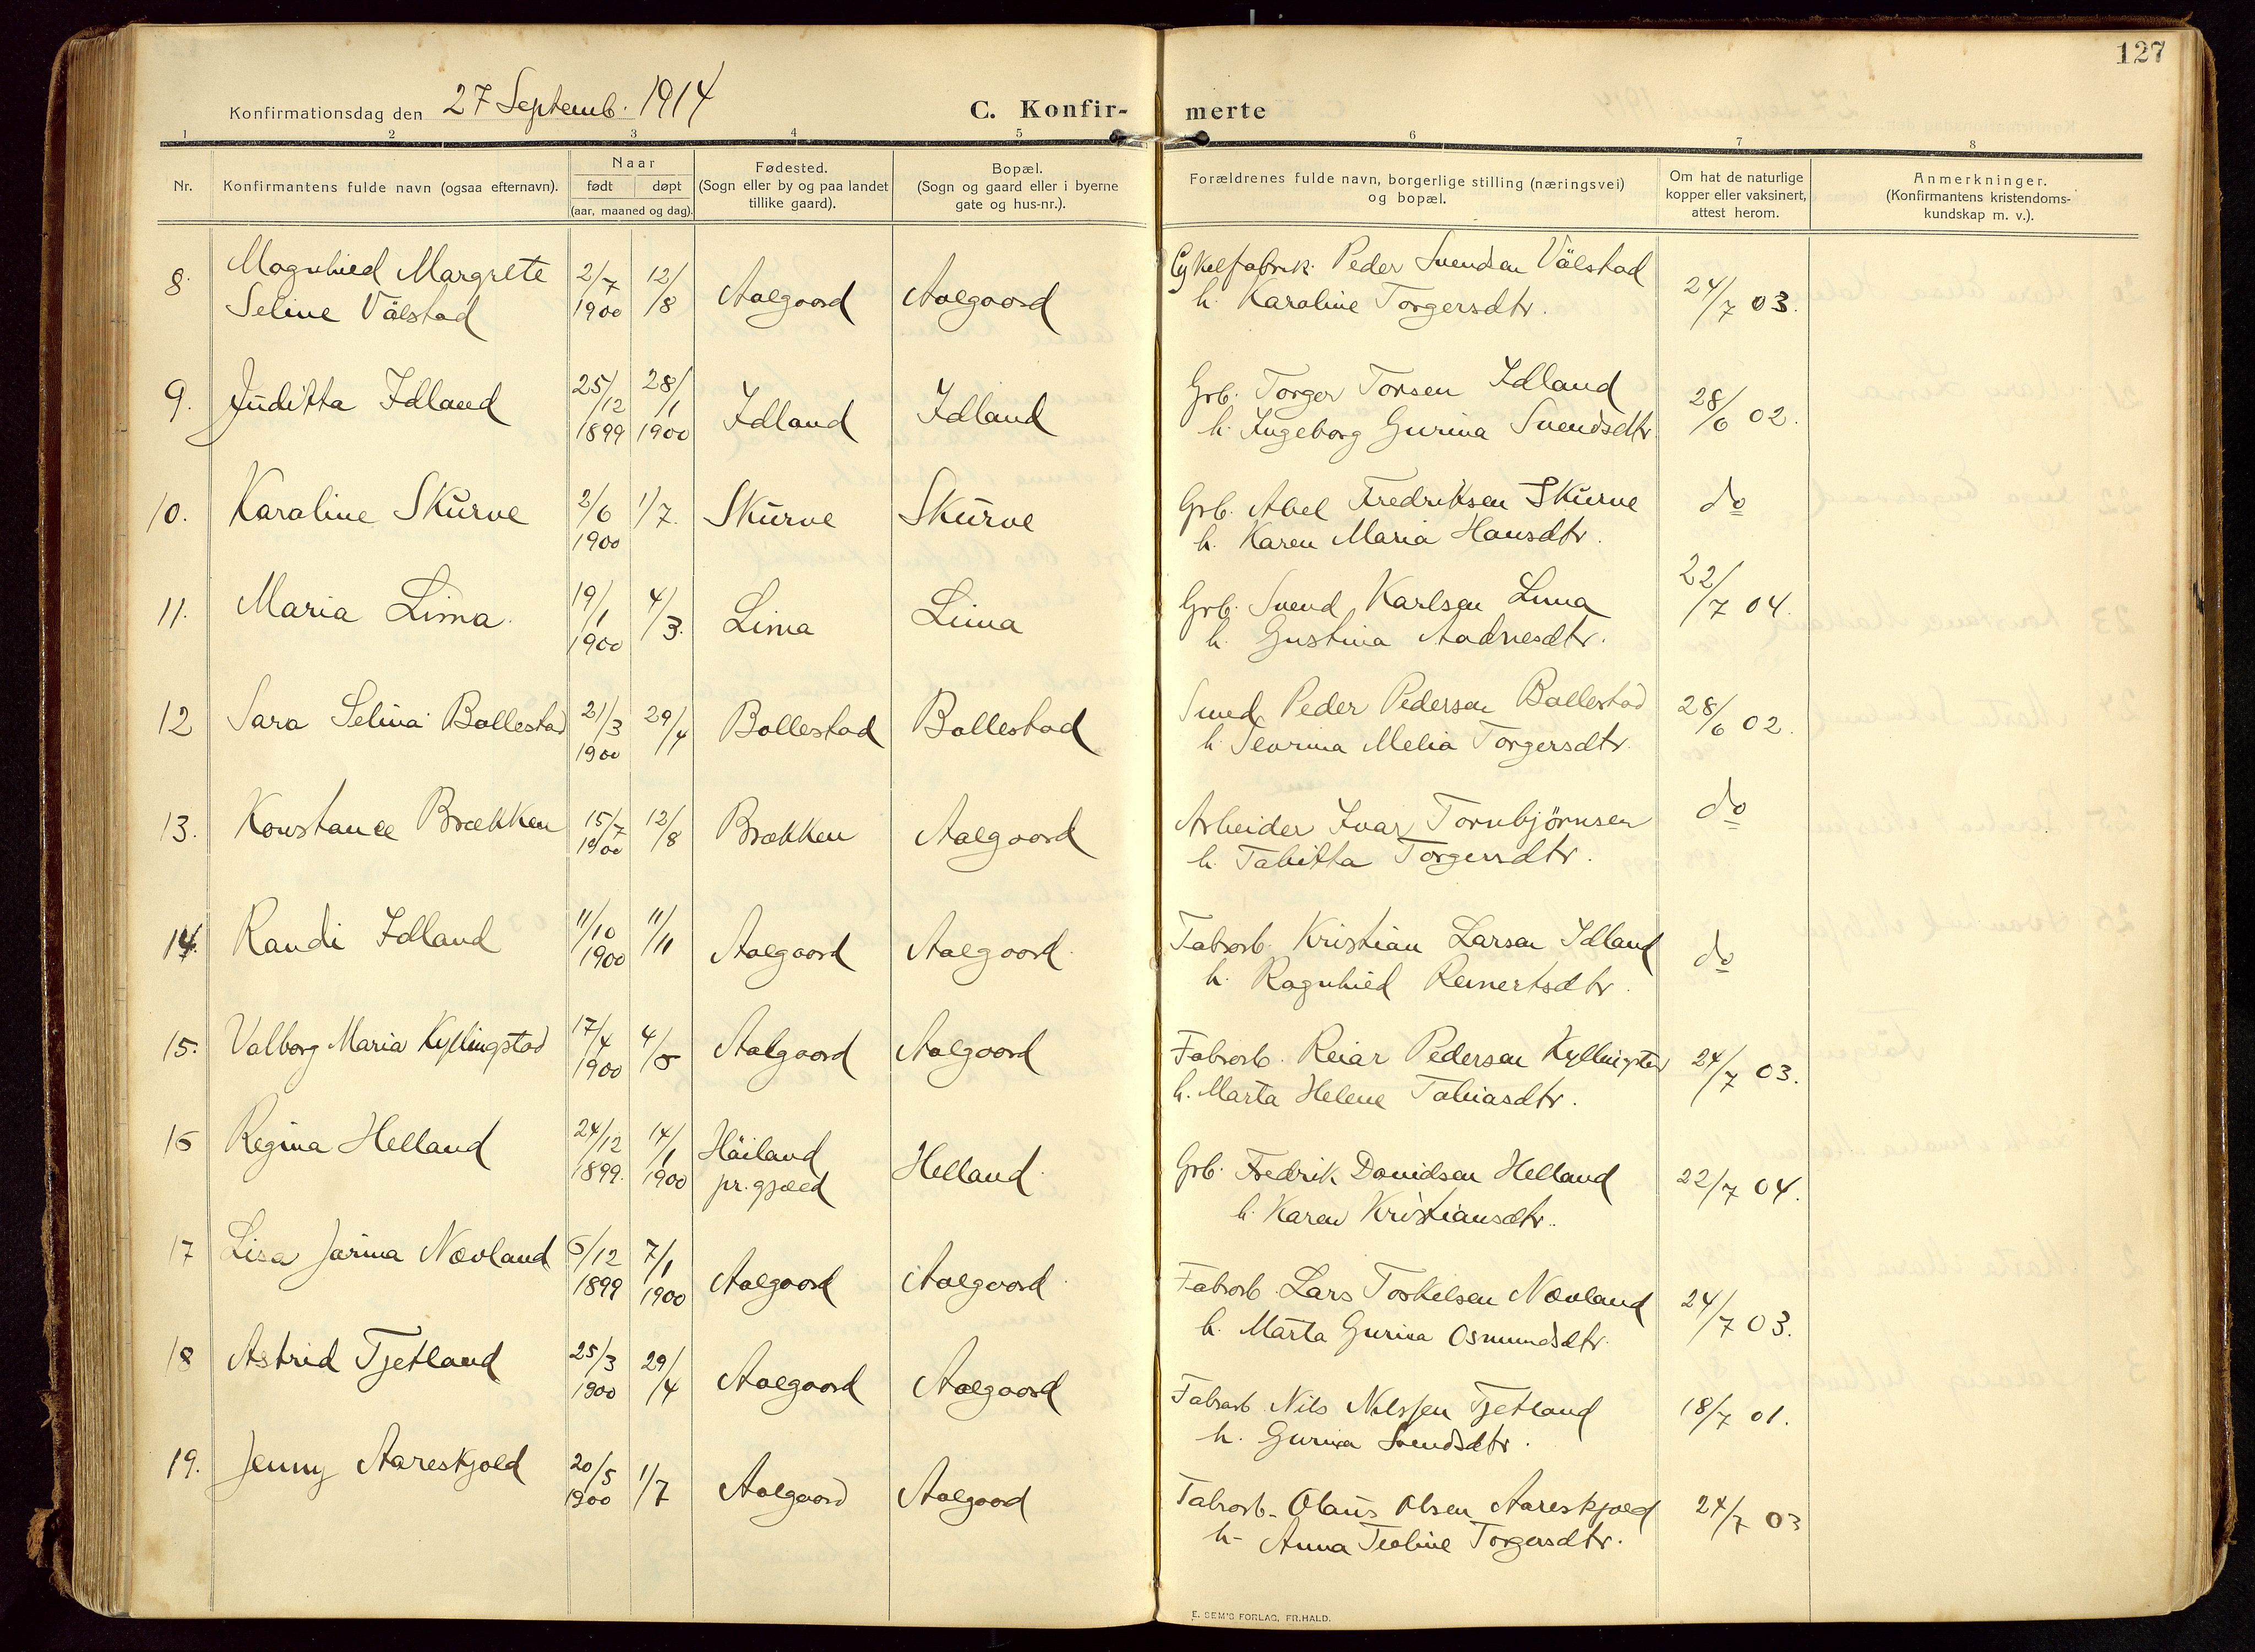 127
Konfirmationsdag den 27 Septemb. 1914
C. Konfir- merte
1 2 3 4 5 6 7 8
Nr.
Konfirmantens fulde navn (ogsaa efternavn).
Naar
født døpt
(aar, maaned og dag).
Fødested.
(Sogn eller by og paa landet
tillike gaard).
Bopæl.
(Sogn og gaard eller i byerne
gate og hus-nr.).
Forældrenes fulde navn, borgerlige stilling (næringsvei)
og bopæl.
Om hat de naturlige
kopper eller vaksinert,
attest herom.
Anmerkninger.
(Konfirmantens kristendoms-
kundskap m. v.).
8. Magnhild Margrete 2/7 12/8 Aalgaard Aalgaard Cykelfabrik. Peder Svendsen Vålstad 24/7 03.
Seline Vålstad 1900 h. Karoline Torgersdtr.
9. Juditta Idland 25/12 28/1 Idland Idland Grb. Torger Tonsen Idland 28/6 02.
1899 1900 h. Ingeborg Gurina Svendsdtr.
10. Karoline Skurve 2/6 1/7. Skurve Skurve Grb. Abel Fredriksen Skurve do
1900 h. Karen Maria Hansdtr.
11. Maria Lima. 19/1 4/3. Lima Lima Grb. Svend Karlsen Lima 22/7 04.
1900 h. Gustina Aadnesdtr.
12 Sara Selina Bollestad 21/3 29/4 Bollestad Bollestad Smed Peder Pedersen Bollestad 28/6 02.
1900 h. Severina Melia Torgersdtr.
13. Konstance Brækken 15/7 12/8 Brækken Aalgaard Arbeider Ivar Tornbjørnsen do
1900 h. Tabitta Torgersdtr.
14. Randi Idland 11/10 11/11 Aalgaard Aalgaard. Fabrarb. Kristian Larsen Idland do
1900 h. Ragnhild Reinertsdtr.
15. Valborg Maria Kyllingstad 17/4 4/5 Aalgaard Aalgaard Fabrarb. Reiar Pedersen Kyllingstad 24/7 03.
1900 h. Marta Helene Tobiasdtr.
16 Regina Helland 24/12 14/1 Håiland Helland. Grb. Fredrik Davidsen Helland 22/7 04.
1899. 1900 pr. gjæld h. Karen Kristiansdtr.
17 Lisa Jorina Nævland 5/12 7/1 Aalgaard Aalgaard. Fabrarb. Lars Torkelsen Nævland 24/7 03.
1899 1900 h. Marta Gurina Osmundsdtr.
18 Astrid Tjetland 25/3 29/4 Aalgaard Aalgaard Fabrarb. Nils Nilssen Tjetland 18/7 01.
1900 h. Gurina Svendsdtr.
19. Jenny Aareskjold 20/5 1/7 Aalgaard Aalgaard Fabrarb. Olaus Olsen Aareskjold 24/7 03
1900 h- Anna Teoline Torgersdtr.
E. SEM'S FORLAG, FR.HALD.